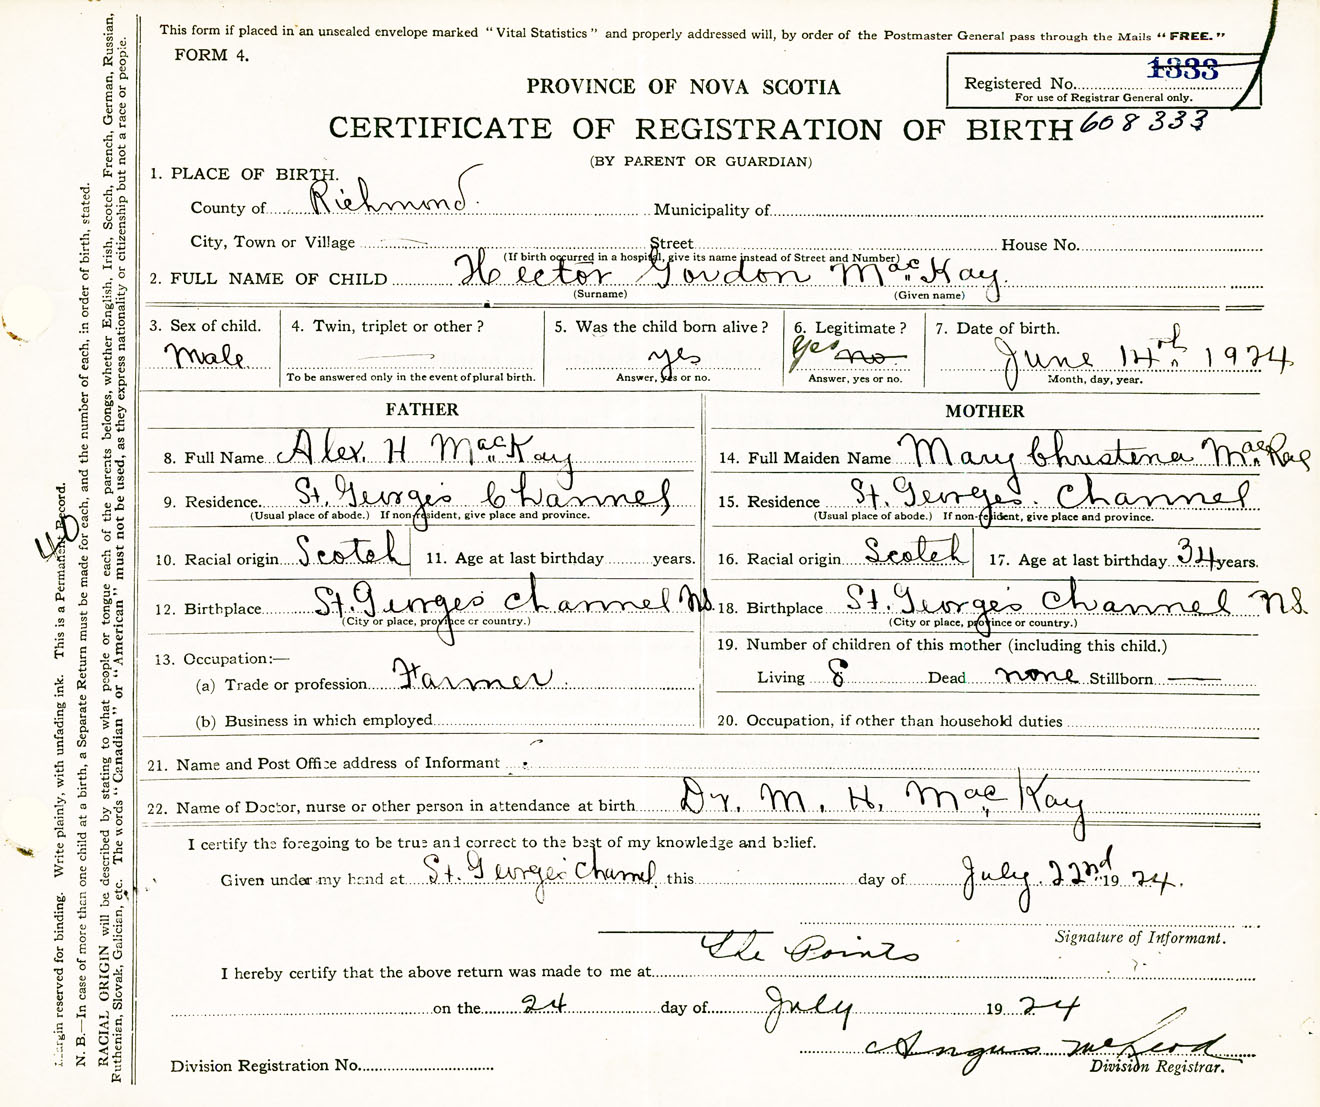 This form if placed in an unsealed envelope marked "Vital Statistics" and properly addressed will, by order of the Postmaster General pass through the Mails "FREE."
FORM 4.
1333
Registered No.
For use of Registrar General only.
PROVINCE OF NOVA SCOTIA
CERTIFICATE OF REGISTRATION OF BIRTH 608333
(BY PARENT OR GUARDIAN)
1. PLACE OF BIRTH.
County of Richmond Municipality of
City, Town or Village Street House No.
(If birth occurred in a hospital, give its name instead of Street and Number)
2. FULL NAME OF CHILD Hector Gordon MacKay
(Surname) (Given name)
3. Sex of child. 4. Twin, triplet or other? 5. Was the child born alive? 6. Legitimate? 7. Date of birth.
Male yes Yes no June 14th 1924
To be answered only in the event of plural birth. Answer, yes or no. Answer, yes or no. Month, day, year.
FATHER MOTHER
8. Full Name Alex. H MacKay 14. Full Maiden Name Mary Christena MacRae
9. Residence. St. Georges Channel 15. Residence St. Georges. Channel
(Usual place of abode.) If non-resident, give place and province. (Usual place of abode.) If non-resident, give place and province.
10. Racial origin Scotch 11. Age at last birthday years. 16. Racial origin Scotch 17. Age at last birthday 34 years.
12. Birthplace St. Georges Channel N.S. 18. Birthplace St. Georges Channel N.S.
(City or place, province or country.) (City or place, province or country.)
13. Occupation:— 19. Number of children of this mother (including this child.)
(a) Trade or profession Farmer Living 8 Dead none Stillborn —
(b) Business in which employed 20. Occupation, if other than household duties
21. Name and Post Office address of Informant
22. Name of Doctor, nurse or other person in attendance at birth Dr. M. H. MacKay
I certify the foregoing to be true and correct to the best of my knowledge and belief.
Given under my hand at St. Georges Channel this day of July 22nd 1924.
Signature of Informant.
I hereby certify that the above return was made to me at The Points
on the 24 day of July 1924
Angus McLeod
Division Registration No. Division Registrar.
Margin reserved for binding. Write plainly, with unfading ink. This is a Permanent Record.
40
N. B.—In case of more than one child at a birth, a Separate Return must be made for each, and the number of each, in order of birth, stated.
RACIAL ORIGIN will be described by stating to what people or tongue each of the parents belongs, whether English, Irish, Scotch, French, German, Russian,
Ruthenian, Slovak, Galician, etc. The words "Canadian" or "American" must not be used, as they express nationality or citizenship but not a race or people.